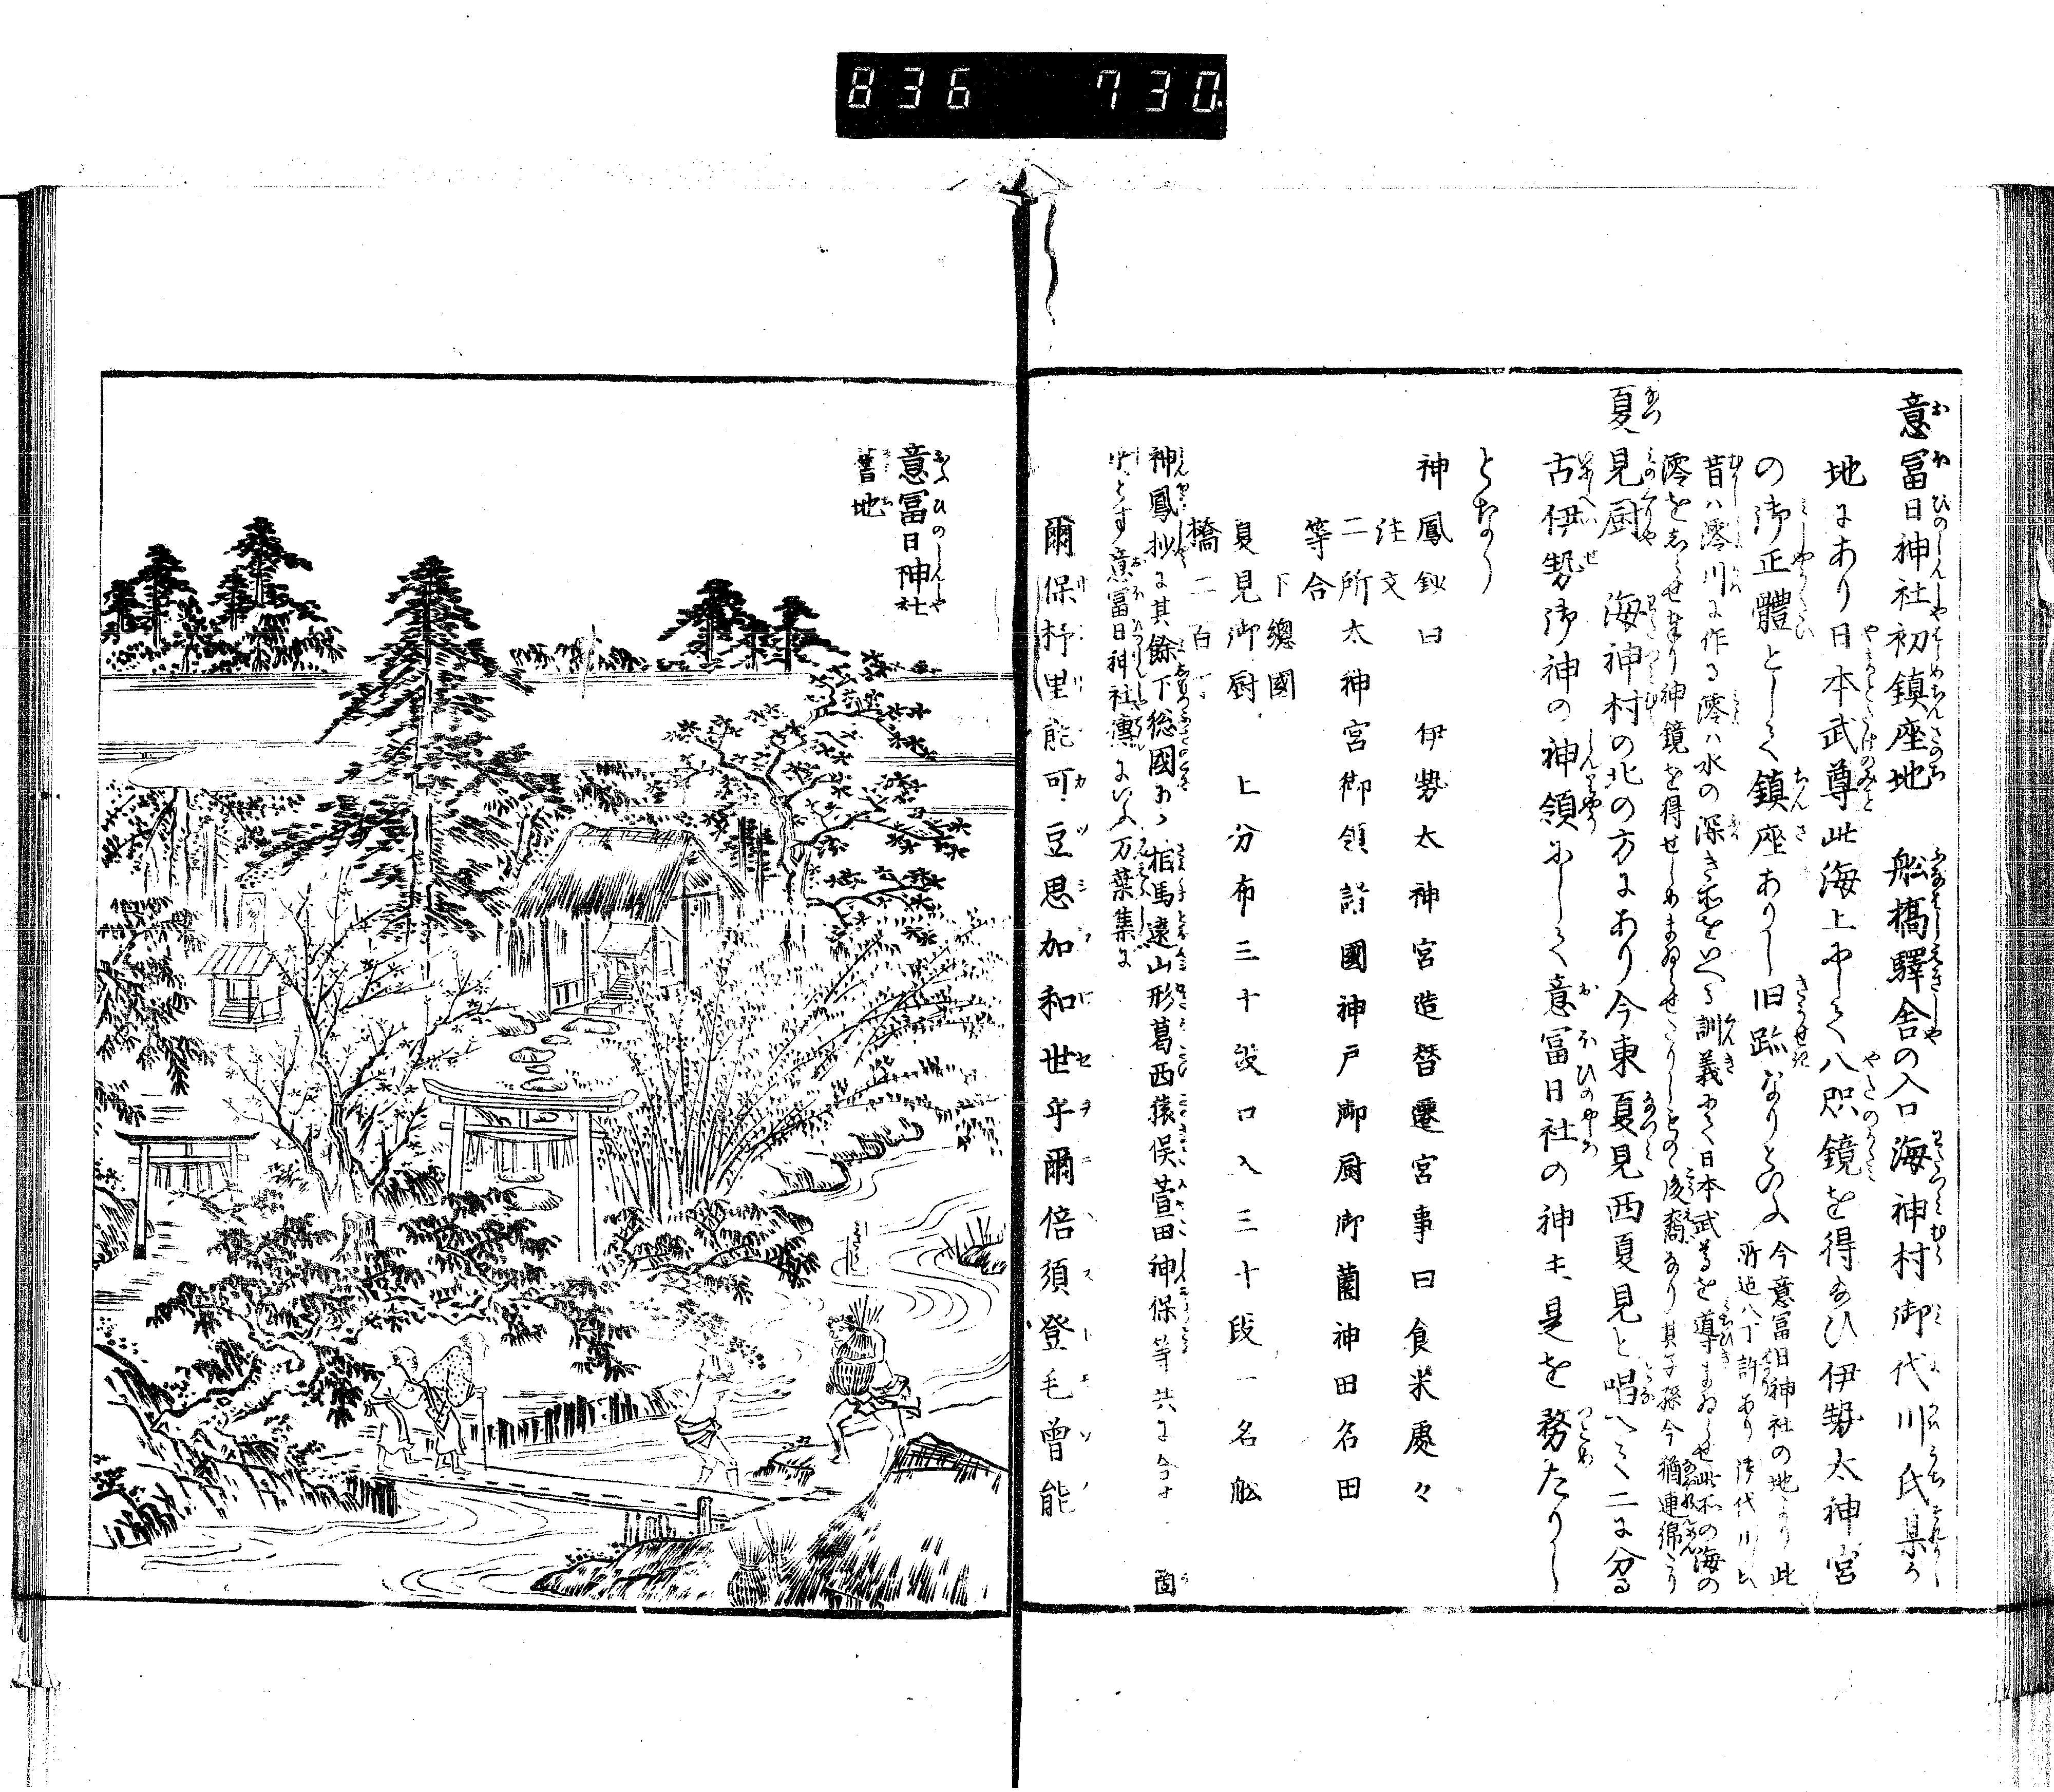 836 730
意冨日神社初鎮座地 舩橋驛舎の入口海神村御代川氏某の
地にあり日本武尊此海上にて八咫鏡を得給ひ伊勢太神宮
の御正體として鎮座ありし旧跡なりといふ
今意冨日神社の地より此
所迄八丁許あり御代川氏
昔ハ澪川に作る澪ハ水の深き所をいへる訓義にて日本武尊を導まゐらせ此所の海の
澪をしらせ奉り神鏡を得せしめまゐらせたりしものゝ後裔なり其子孫今猶連綿たり
夏見厨 海神村の北の方にあり今東夏見西夏見と唱へて二に分る
古伊勢御神の神領にして意冨日社の神主是を務たりし
となり
神鳳鈔曰 伊勢太神宮造替遷宮事曰食米處々
注文
二所太神宮御領諸國神戸御厨御薗神田名田
等合
下總國
夏見御厨 上分布三十段口入三十段一名舩
橋二百丁
神鳳抄に其餘下総國にハ相馬遠山形葛西猿俣萱田神保等共に
とす意冨日神社傳にいふ万葉集に
爾保杼里能可豆思加和世乎爾倍須登毛曾能
意冨日神社
舊地